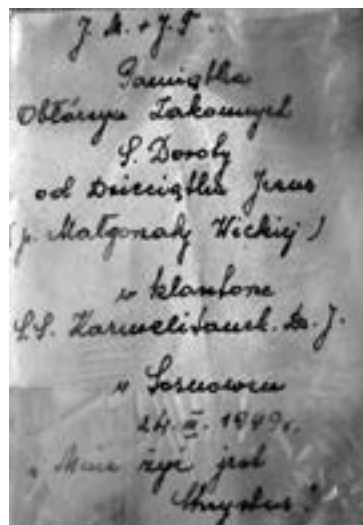 J. M. + J. T.
Pamiątka
Obłóczyn Zakonnych
S. Doroty
od Dzieciątka Jezus
(p. Małgorzaty Wickiej)
w klasztorze
S.S. Karmelitanek. Dz. J.
w Sosnowcu
24. III. 1949 r.
„Mnie żyć jest
Chrystus"